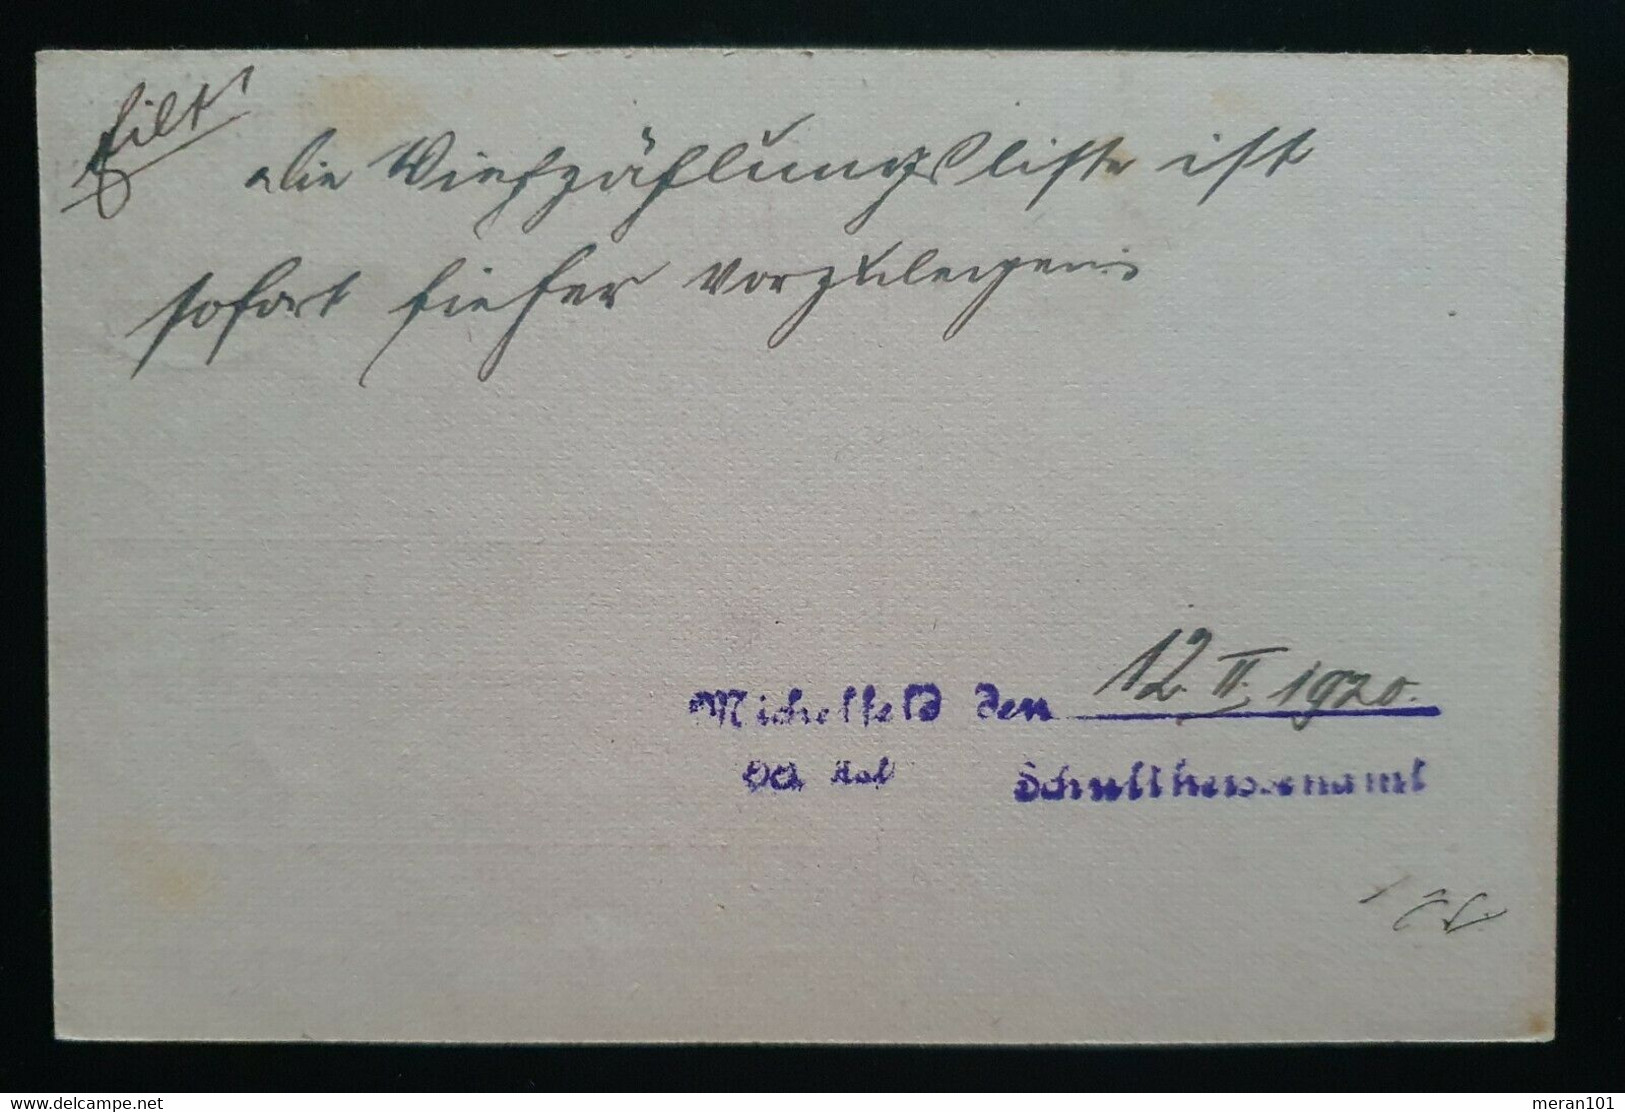 Eilt!
Die Viehzählungsliste ist
sofort hieher vorzulegen.
Michelfeld den 12. II. 1920.
OA Hal Schultheissenamt
www.delcampe.net
meran101